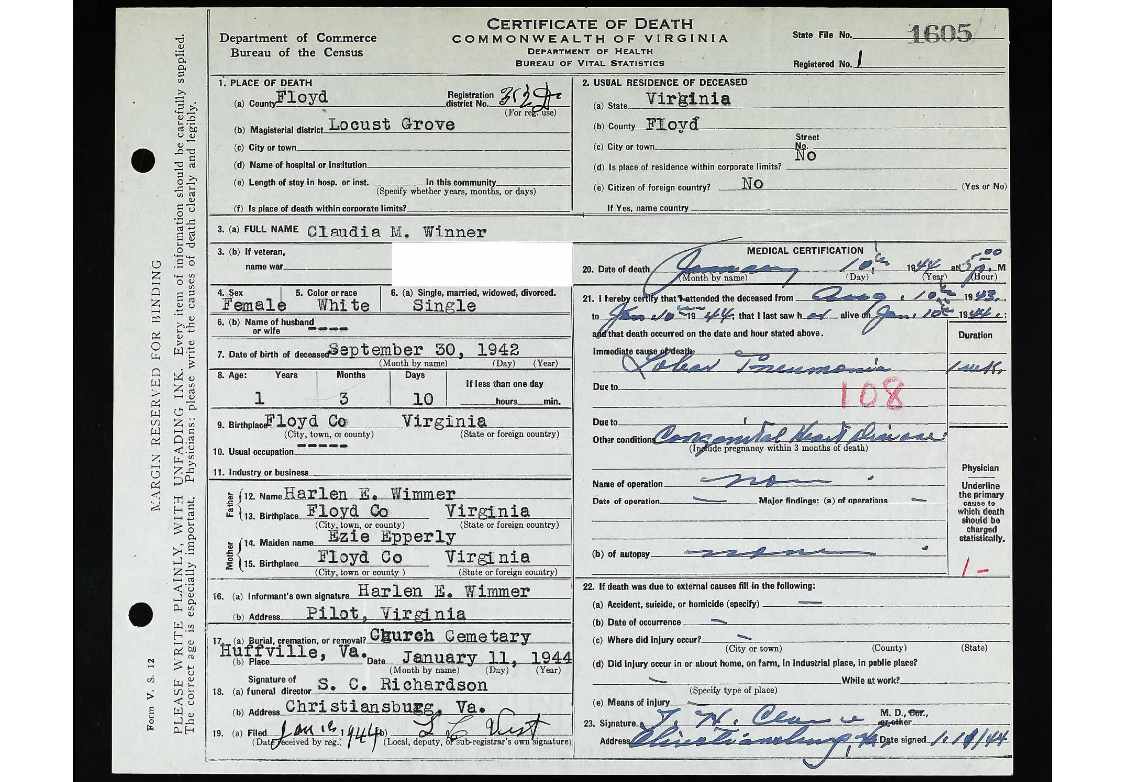 CERTIFICATE OF DEATH
COMMONWEALTH OF VIRGINIA
DEPARTMENT OF HEALTH
BUREAU OF VITAL STATISTICS
Department of Commerce
Bureau of the Census
State File No. 1605
Registered No. 1
MARGIN RESERVED FOR BINDING
PLEASE WRITE PLAINLY, WITH UNFADING INK. Every item of information should be carefully supplied.
The correct age is especially important. Physicians: please write the causes of death clearly and legibly.
Form V. S. 12
1. PLACE OF DEATH
(a) County Floyd Registration district No.
(For reg. use)
(b) Magisterial district Locust Grove
(c) City or town
(d) Name of hospital or institution
(e) Length of stay in hosp. or inst. In this community
(Specify whether years, months, or days)
(f) Is place of death within corporate limits?
2. USUAL RESIDENCE OF DECEASED
(a) State Virginia
(b) County Floyd
(c) City or town Street No.
(d) Is place of residence within corporate limits? No
(e) Citizen of foreign country? No (Yes or No)
If Yes, name country
3. (a) FULL NAME Claudia M. Winner
3. (b) If veteran,
name war
4. Sex 5. Color or race 6. (a) Single, married, widowed, divorced.
Female White Single
6. (b) Name of husband or wife ----
7. Date of birth of deceased September 30, 1942
(Month by name) (Day) (Year)
8. Age: Years Months Days If less than one day
1 3 10 hours min.
9. Birthplace Floyd Co Virginia
(City, town, or county) (State or foreign country)
10. Usual occupation -----
11. Industry or business
Father
12. Name Harlen E. Wimmer
13. Birthplace Floyd Co Virginia
(City, town, or county) (State or foreign country)
Mother
14. Maiden name Ezie Epperly
15. Birthplace Floyd Co Virginia
(City, town or county) (State or foreign country)
16. (a) Informant's own signature Harlen E. Wimmer
(b) Address Pilot, Virginia
17. (a) Burial, cremation, or removal? Church Cemetary
Huffville, Va.
(b) Place Date January 11, 1944
(Month by name) (Day) (Year)
18. (a) Signature of funeral director S. C. Richardson
(b) Address Christiansburg, Va.
19. (a) Filed Jan 12, 1944 (b)
(Date received by reg.) (Local, deputy, or sub-registrar's own signature)
MEDICAL CERTIFICATION
20. Date of death January 10th 1944 at M
(Month by name) (Day) (Year) (Hour)
21. I hereby certify that I attended the deceased from Aug. 10th 1943.
to Jan 10th 1944, that I last saw her alive on Jan. 10th 1944:
and that death occurred on the date and hour stated above.
Duration
Immediate cause of death
Lobar Pneumonia 1 wk.
Due to
108
Due to
Other conditions Congenital Heart Disease.
(Include pregnancy within 3 months of death)
Name of operation none
Date of operation — Major findings: (a) of operations —
(b) of autopsy none
Physician
Underline the primary cause to which death should be charged statistically.
1-
22. If death was due to external causes fill in the following:
(a) Accident, suicide, or homicide (specify) —
(b) Date of occurrence —
(c) Where did injury occur? —
(City or town) (County) (State)
(d) Did injury occur in or about home, on farm, in industrial place, in public place?
— While at work?
(Specify type of place)
(e) Means of injury —
23. Signature M. D., or other
Address Christiansburg, Va. Date signed